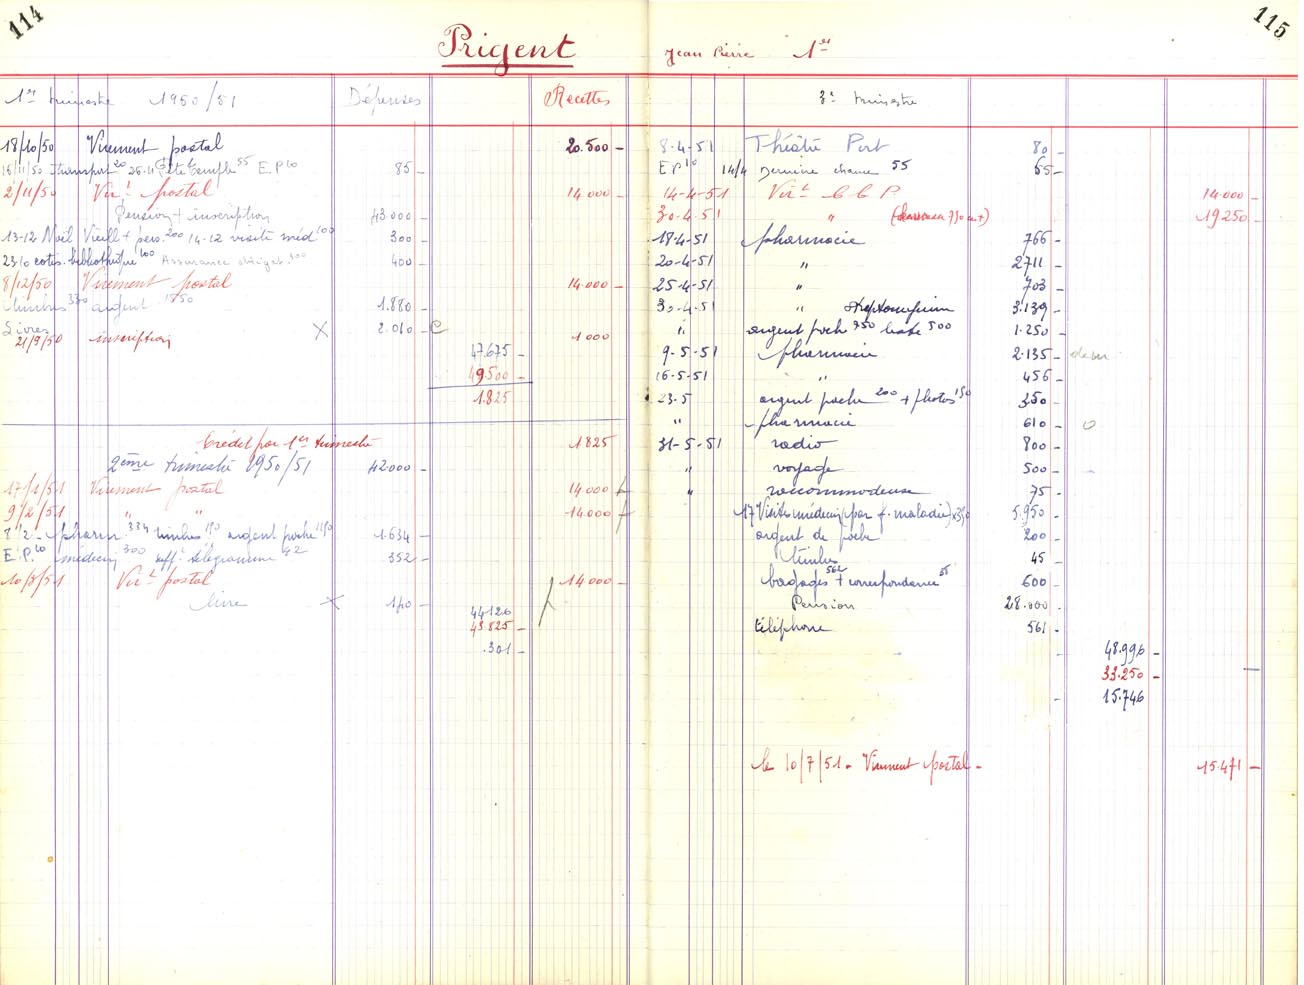 114
Prigent
1er trimestre 1950/51 Dépenses Recettes
18/10/50 Virement postal 20.500
16/11/50 transport 20 26.11 fête temple 55 E.P 10 85
2/11/50 Virt postal 14.000
Pension + inscription 43.000
13-12 Noël Vieill + pers. 200 14-12 visite méd 100 300
23.10 cotis. bibliothèque 100 Assurance 300 400
8/12/50 Virement postal 14.000
timbres 330 argent 1550 1.880
Livres X 2.010
21/9/50 inscription 1000
47.675
49.500
1.825
Crédit par 1er trimestre 1825
2ème trimestre 1950/51 42.000
17/1/51 Virement postal 14.000
9/2/51 " " 14.000
8/2 - pharm. 334 timbres 150 argent poche 1150 1.634
E.P. 10 médecin 300 télégramme 42 352
10/3/51 Virt postal 14.000
livre X 140
44.126
43.825
.301
115
Jean Pierre 1er
3e trimestre
8-4-51 Théâtre Port 80
EP 10 14/4 Dernière chance 55 65
14-4-51 Virt C C P 14.000
30-4-51 " 19250
18-4-51 pharmacie 766
20-4-51 " 2711
25-4-51 " 703
30-4-51 " 3.139
" argent poche 750 500 1.250
9-5-51 pharmacie 2.135
16-5-51 " 456
23.5 argent poche 200 + photos 150 350
" pharmacie 610
31-5-51 radio 800
" voyage 500
" raccommodeuse 75
17 Visites médecin (par f. maladie) x 350 5.950
argent de poche 200
timbres 45
bagages 562 + correspondance 38 600
Pension 28.000
téléphone 561
48.996
33.250
15.746
le 10/7/51 - Virement postal - 15.471